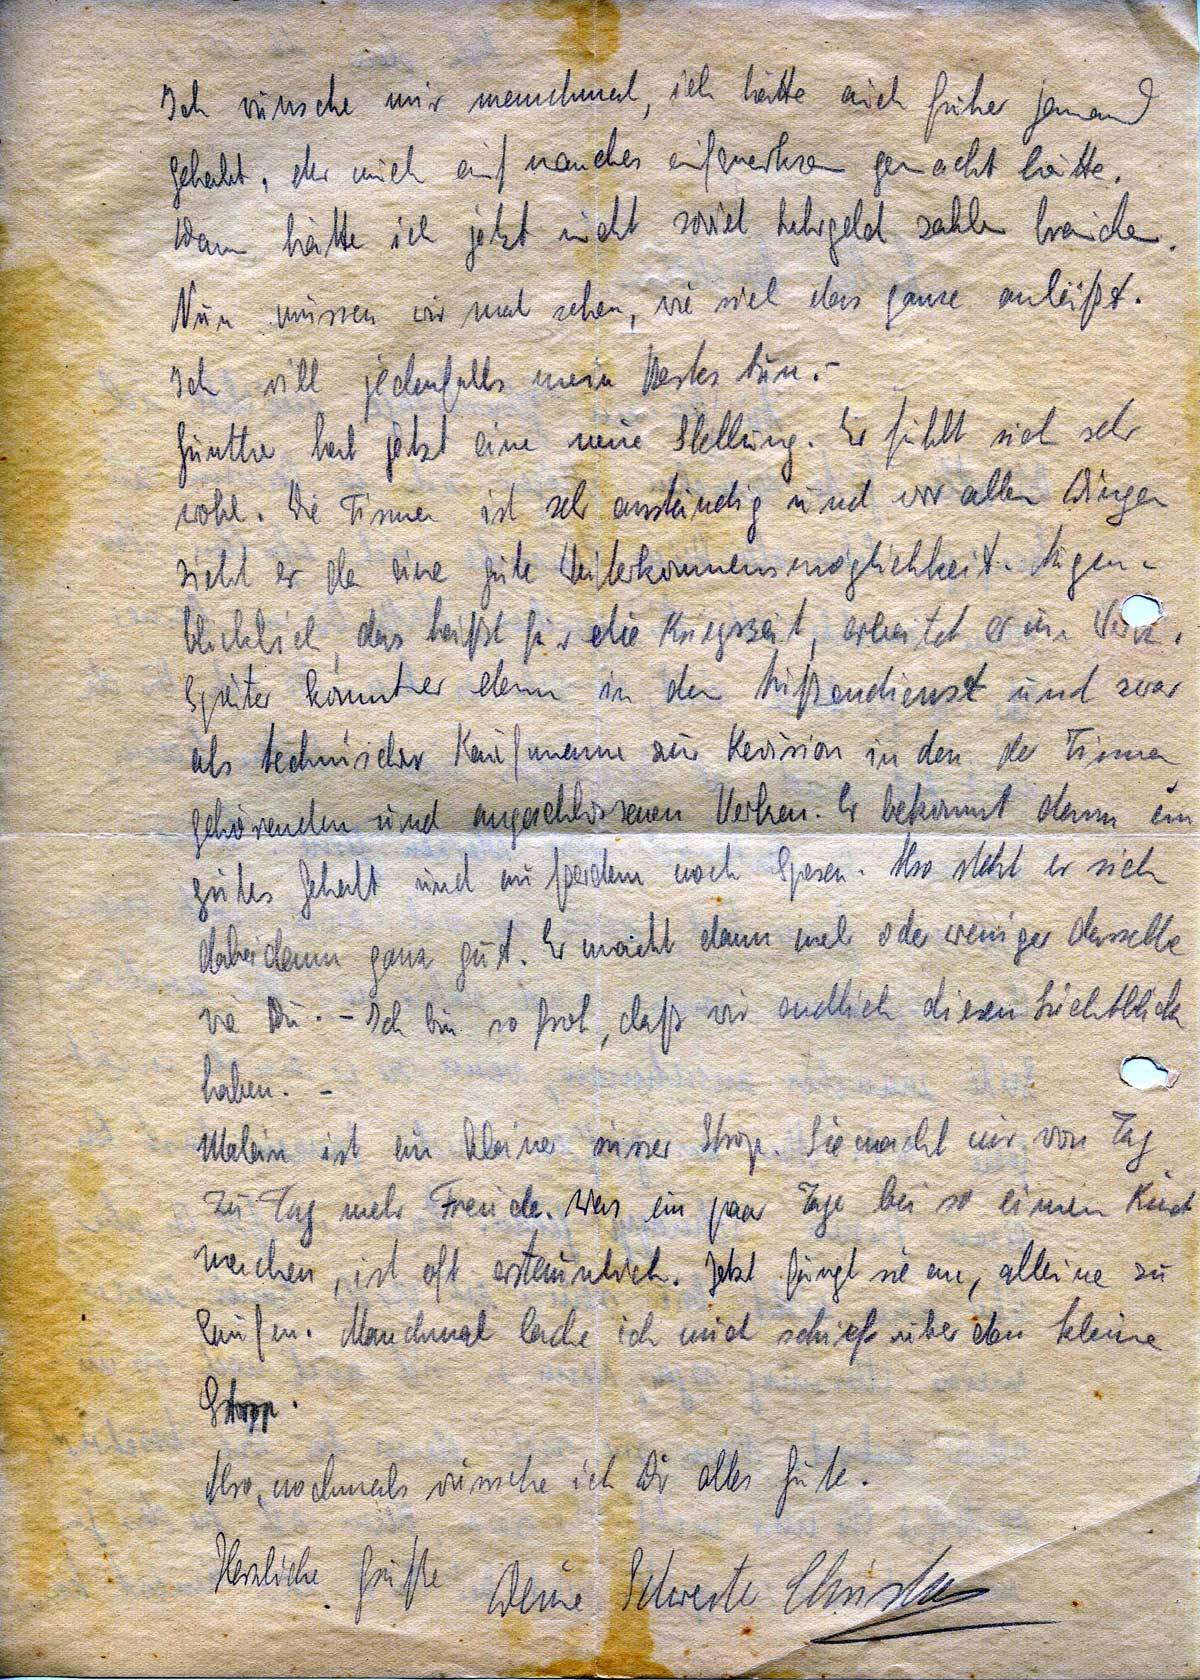 Ich wünsche mir manchmal, ich hätte auch früher jemand
gehabt, der mich auf manches aufmerksam gemacht hätte.
Dann hätte ich jetzt nicht soviel Lehrgeld zahlen brauchen.
Nun müssen wir mal sehen, wie viel das ganze anläuft.
Ich will jedenfalls mein Bestes tun.-
Günther hat jetzt eine neue Stellung. Er fühlt sich sehr
wohl. Die Firma ist sehr anständig und vor allen Dingen
sieht er da eine gute Weiterkommensmöglichkeit. Augen-
blicklich, das heißt für die Kriegszeit, arbeitet er im
Später kommt er dann in den Außendienst und zwar
als technischer Kaufmann zur Revision in den der Firma
gehörenden und angeschlossenen Werken. Er bekommt dann ein
gutes Gehalt und außerdem noch Spesen. Also steht er sich
dabei dann ganz gut. Er macht dann mehr oder weniger dasselbe
wie Du. - Ich bin so froh, daß wir endlich diesen Lichtblick
haben. -
ist ein kleiner süsser Strop. Sie macht mir von Tag
zu Tag mehr Freude. Was ein paar Tage bei so einem Kind
machen, ist oft erstaunlich. Jetzt fängt sie an, alleine zu
laufen. Manchmal lache ich mich schief über den kleine
Stropp.
Also, nochmals wünsche ich Dir alles Gute.
Herzliche Grüße Deine Schwester Christa